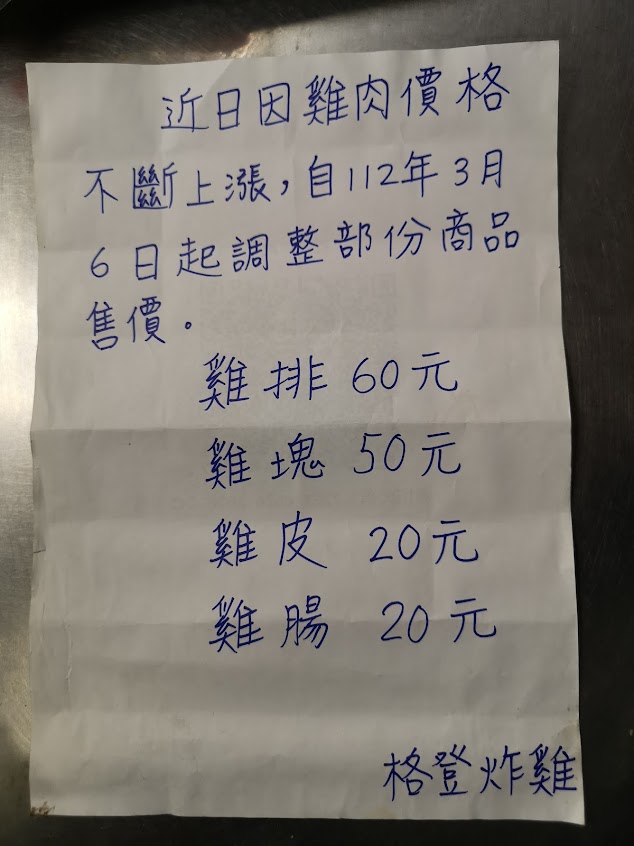 近日因雞肉價格
不斷上漲，自112年3月
6日起調整部份商品
售價。
雞排 60元
雞塊 50元
雞皮 20元
雞腸 20元
格登炸雞